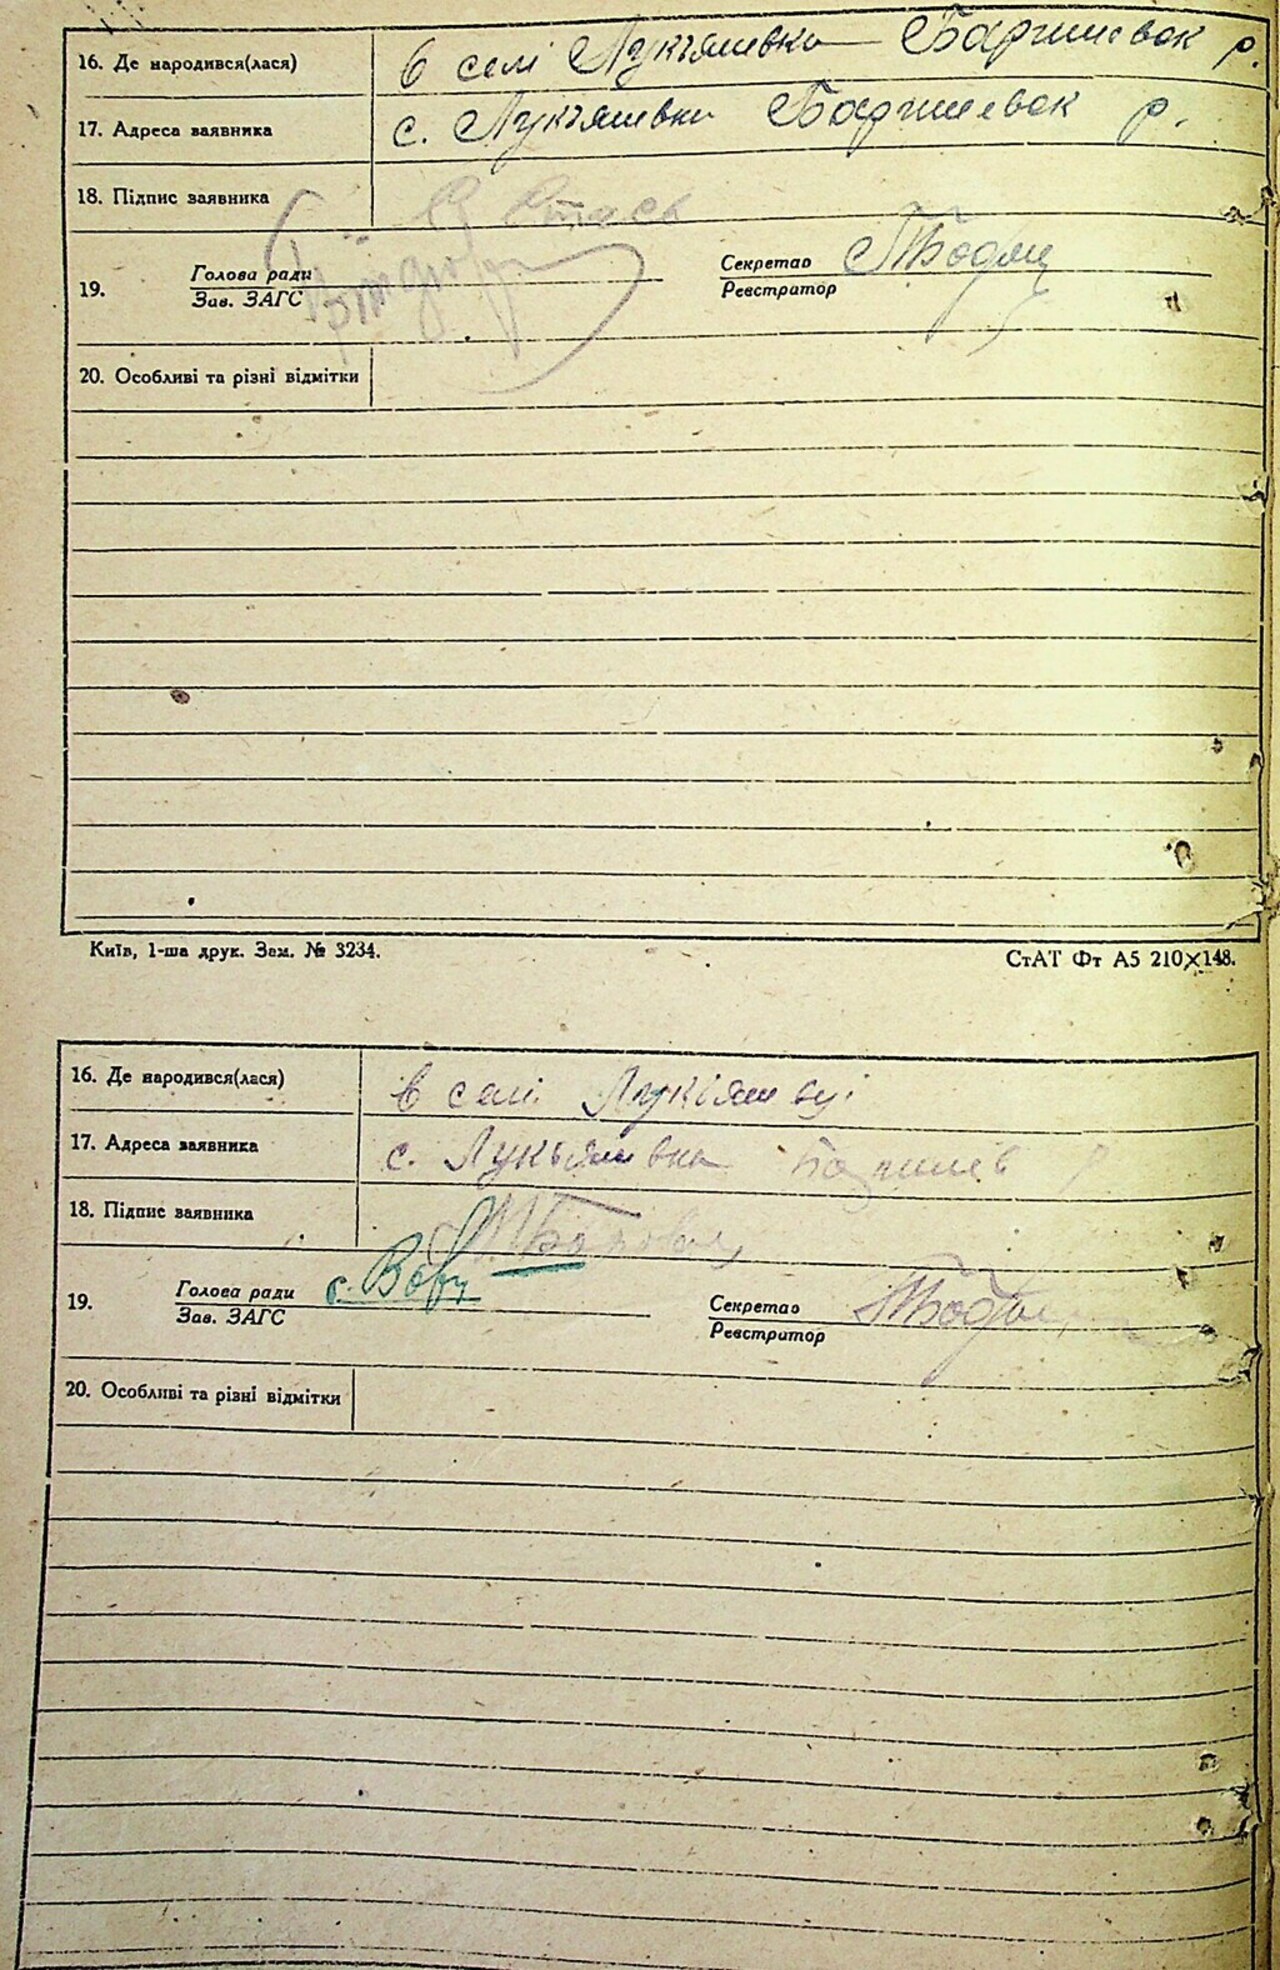 16. Де народився(лася) в селі Лукъянивка Баришевск р.
17. Адреса заявника с. Лукъянивка Баришевск р.
18. Підпис заявника Стась
19. Голова ради Секретар
Зав. ЗАГС Реєстратор
20. Особливі та різні відмітки
Київ, 1-ша друк. Зам. № 3234. СтАТ Фт А5 210×148.
16. Де народився(лася) в селі Лукіянівці
17. Адреса заявника с. Лукъянивка
18. Підпис заявника
19. Голова ради Секретар
Зав. ЗАГС Реєстратор
20. Особливі та різні відмітки